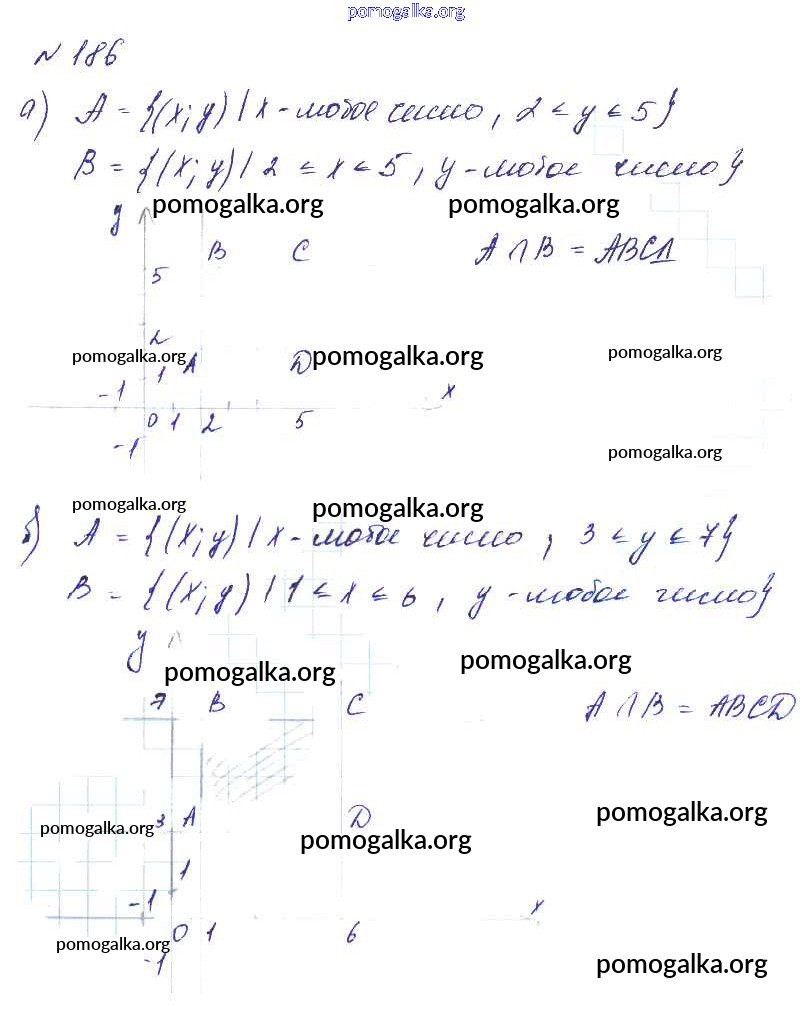 pomogalka.org
N 186
а) A = {(x; y) | x - любое число, 2 ≤ y ≤ 5}
B = {(x; y) | 2 ≤ x ≤ 5, y - любое число}
y pomogalka.org pomogalka.org
B C A ∩ B = ABCD
5
2
pomogalka.org 1 A D pomogalka.org pomogalka.org
-1 x
0 1 2 5
-1 pomogalka.org
pomogalka.org pomogalka.org
б) A = {(x; y) | x - любое число, 3 ≤ y ≤ 7}
B = {(x; y) | 1 ≤ x ≤ 6, y - любое число}
y pomogalka.org pomogalka.org
7 B C A ∩ B = ABCD
3 A D pomogalka.org
pomogalka.org pomogalka.org
1
-1 x
0 1 6
pomogalka.org -1 pomogalka.org